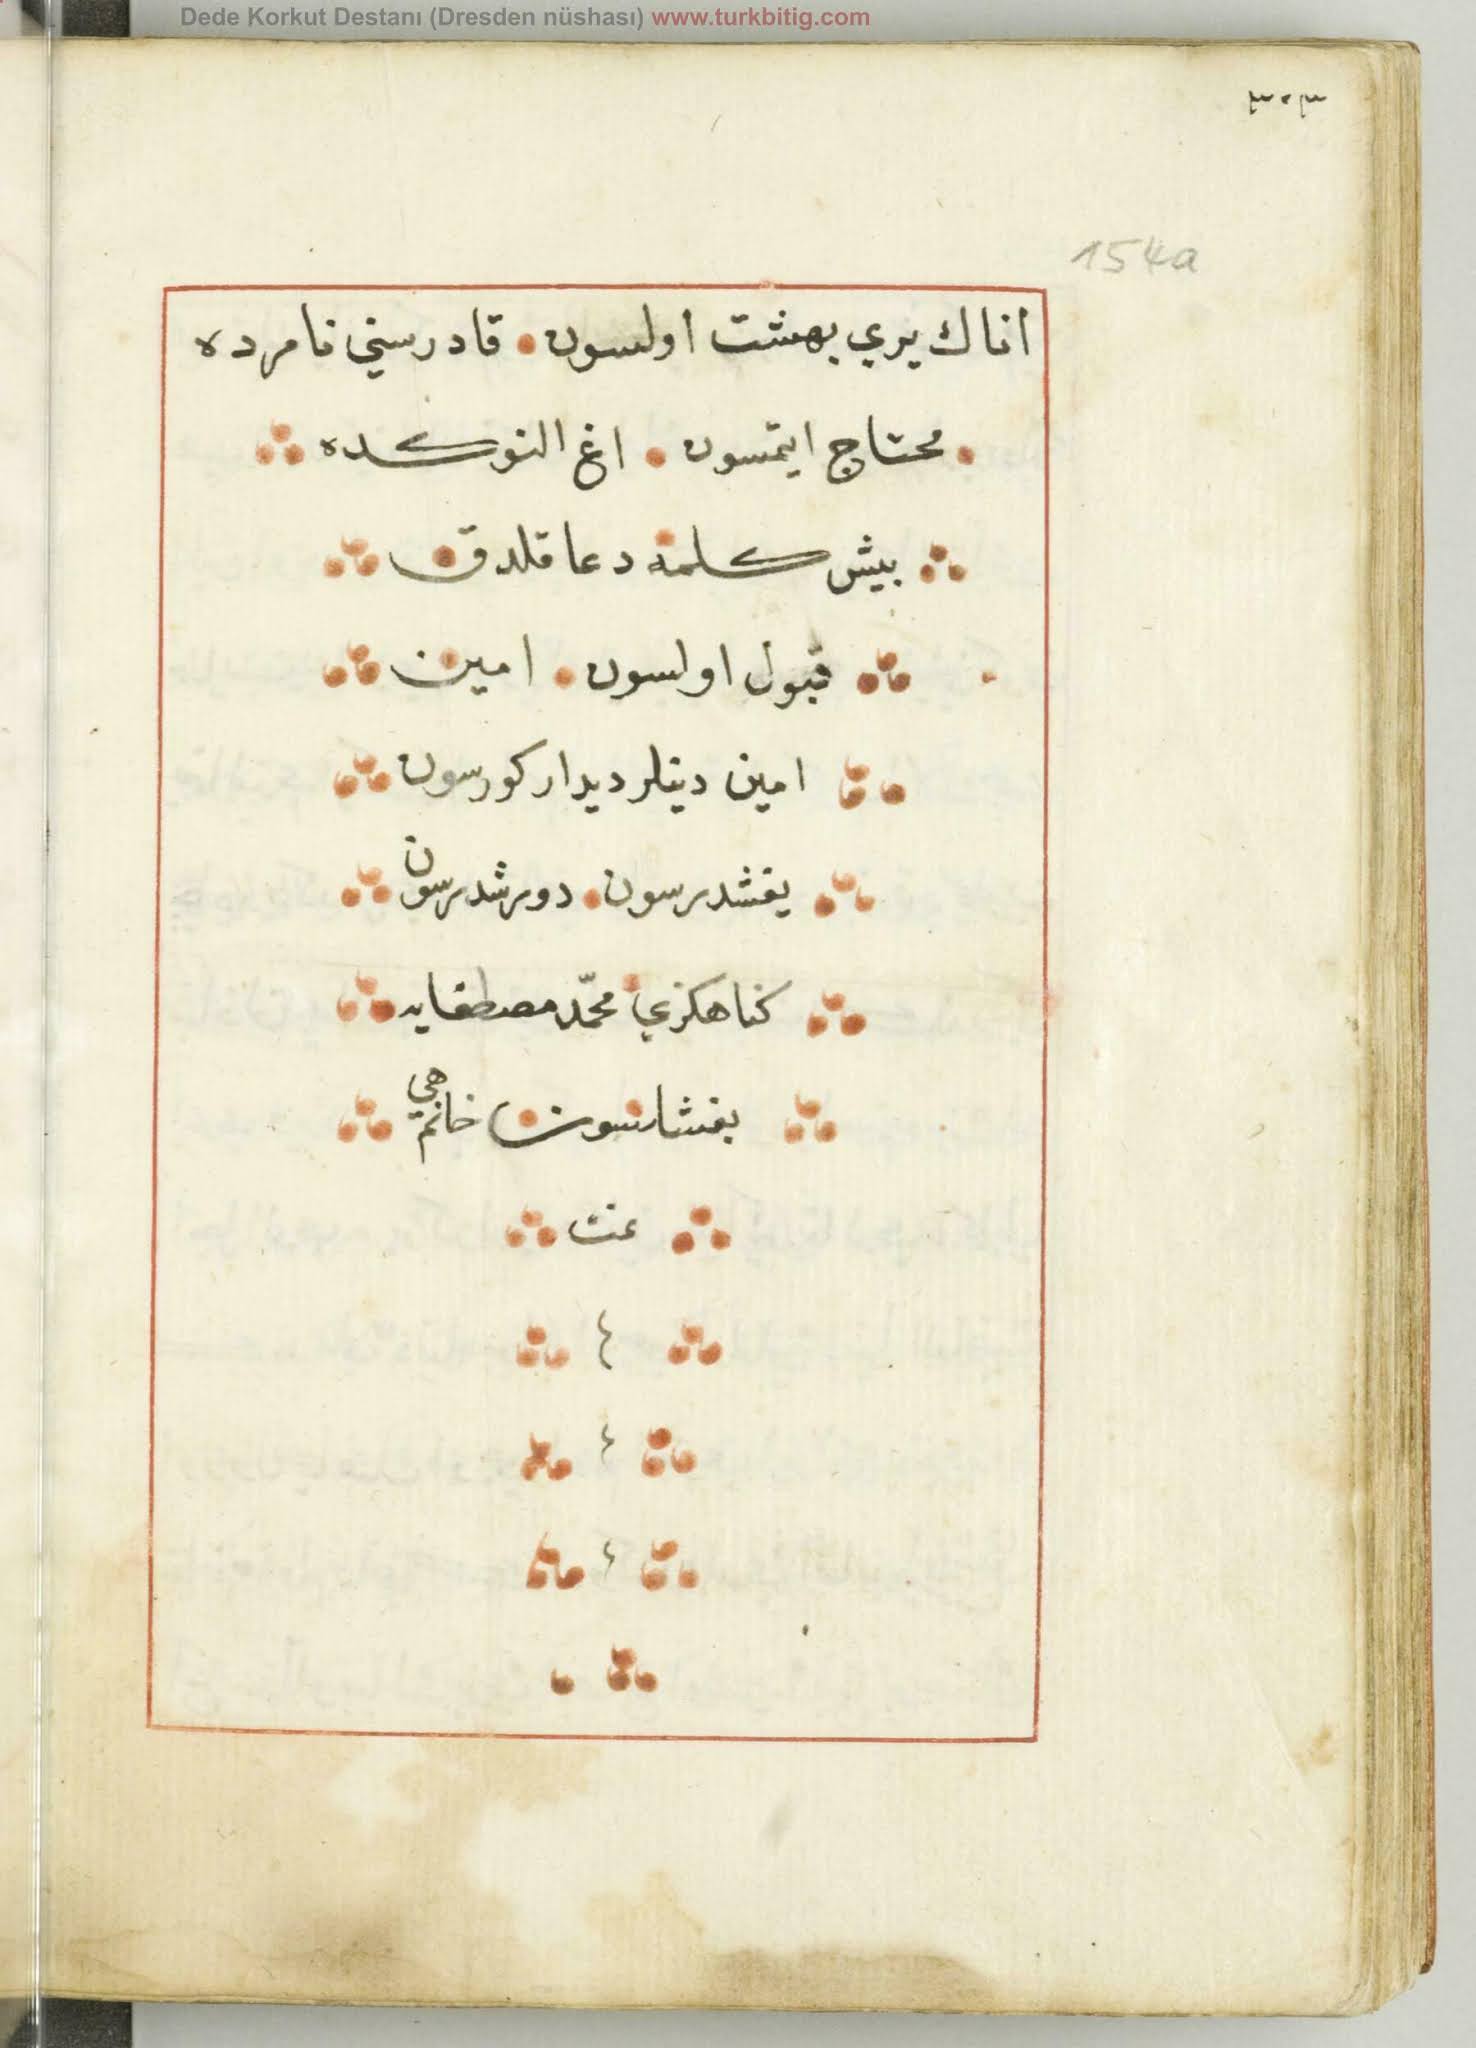 Dede Korkut Destanı (Dresden nüshası) www.turkbitig.com
٣٠٣
154a
اناك يري بهشت اولسون قادر سني نامرده
محتاج ايتمسون اغ النوكده
بيش كلمه دعا قلدق
قبول اولسون امين
امين دينلر ديدار كورسون
يغشدرسون دورشدرسون
كناهكزي محمّد مصطفايه
بغشلسون خانم هي
تمت